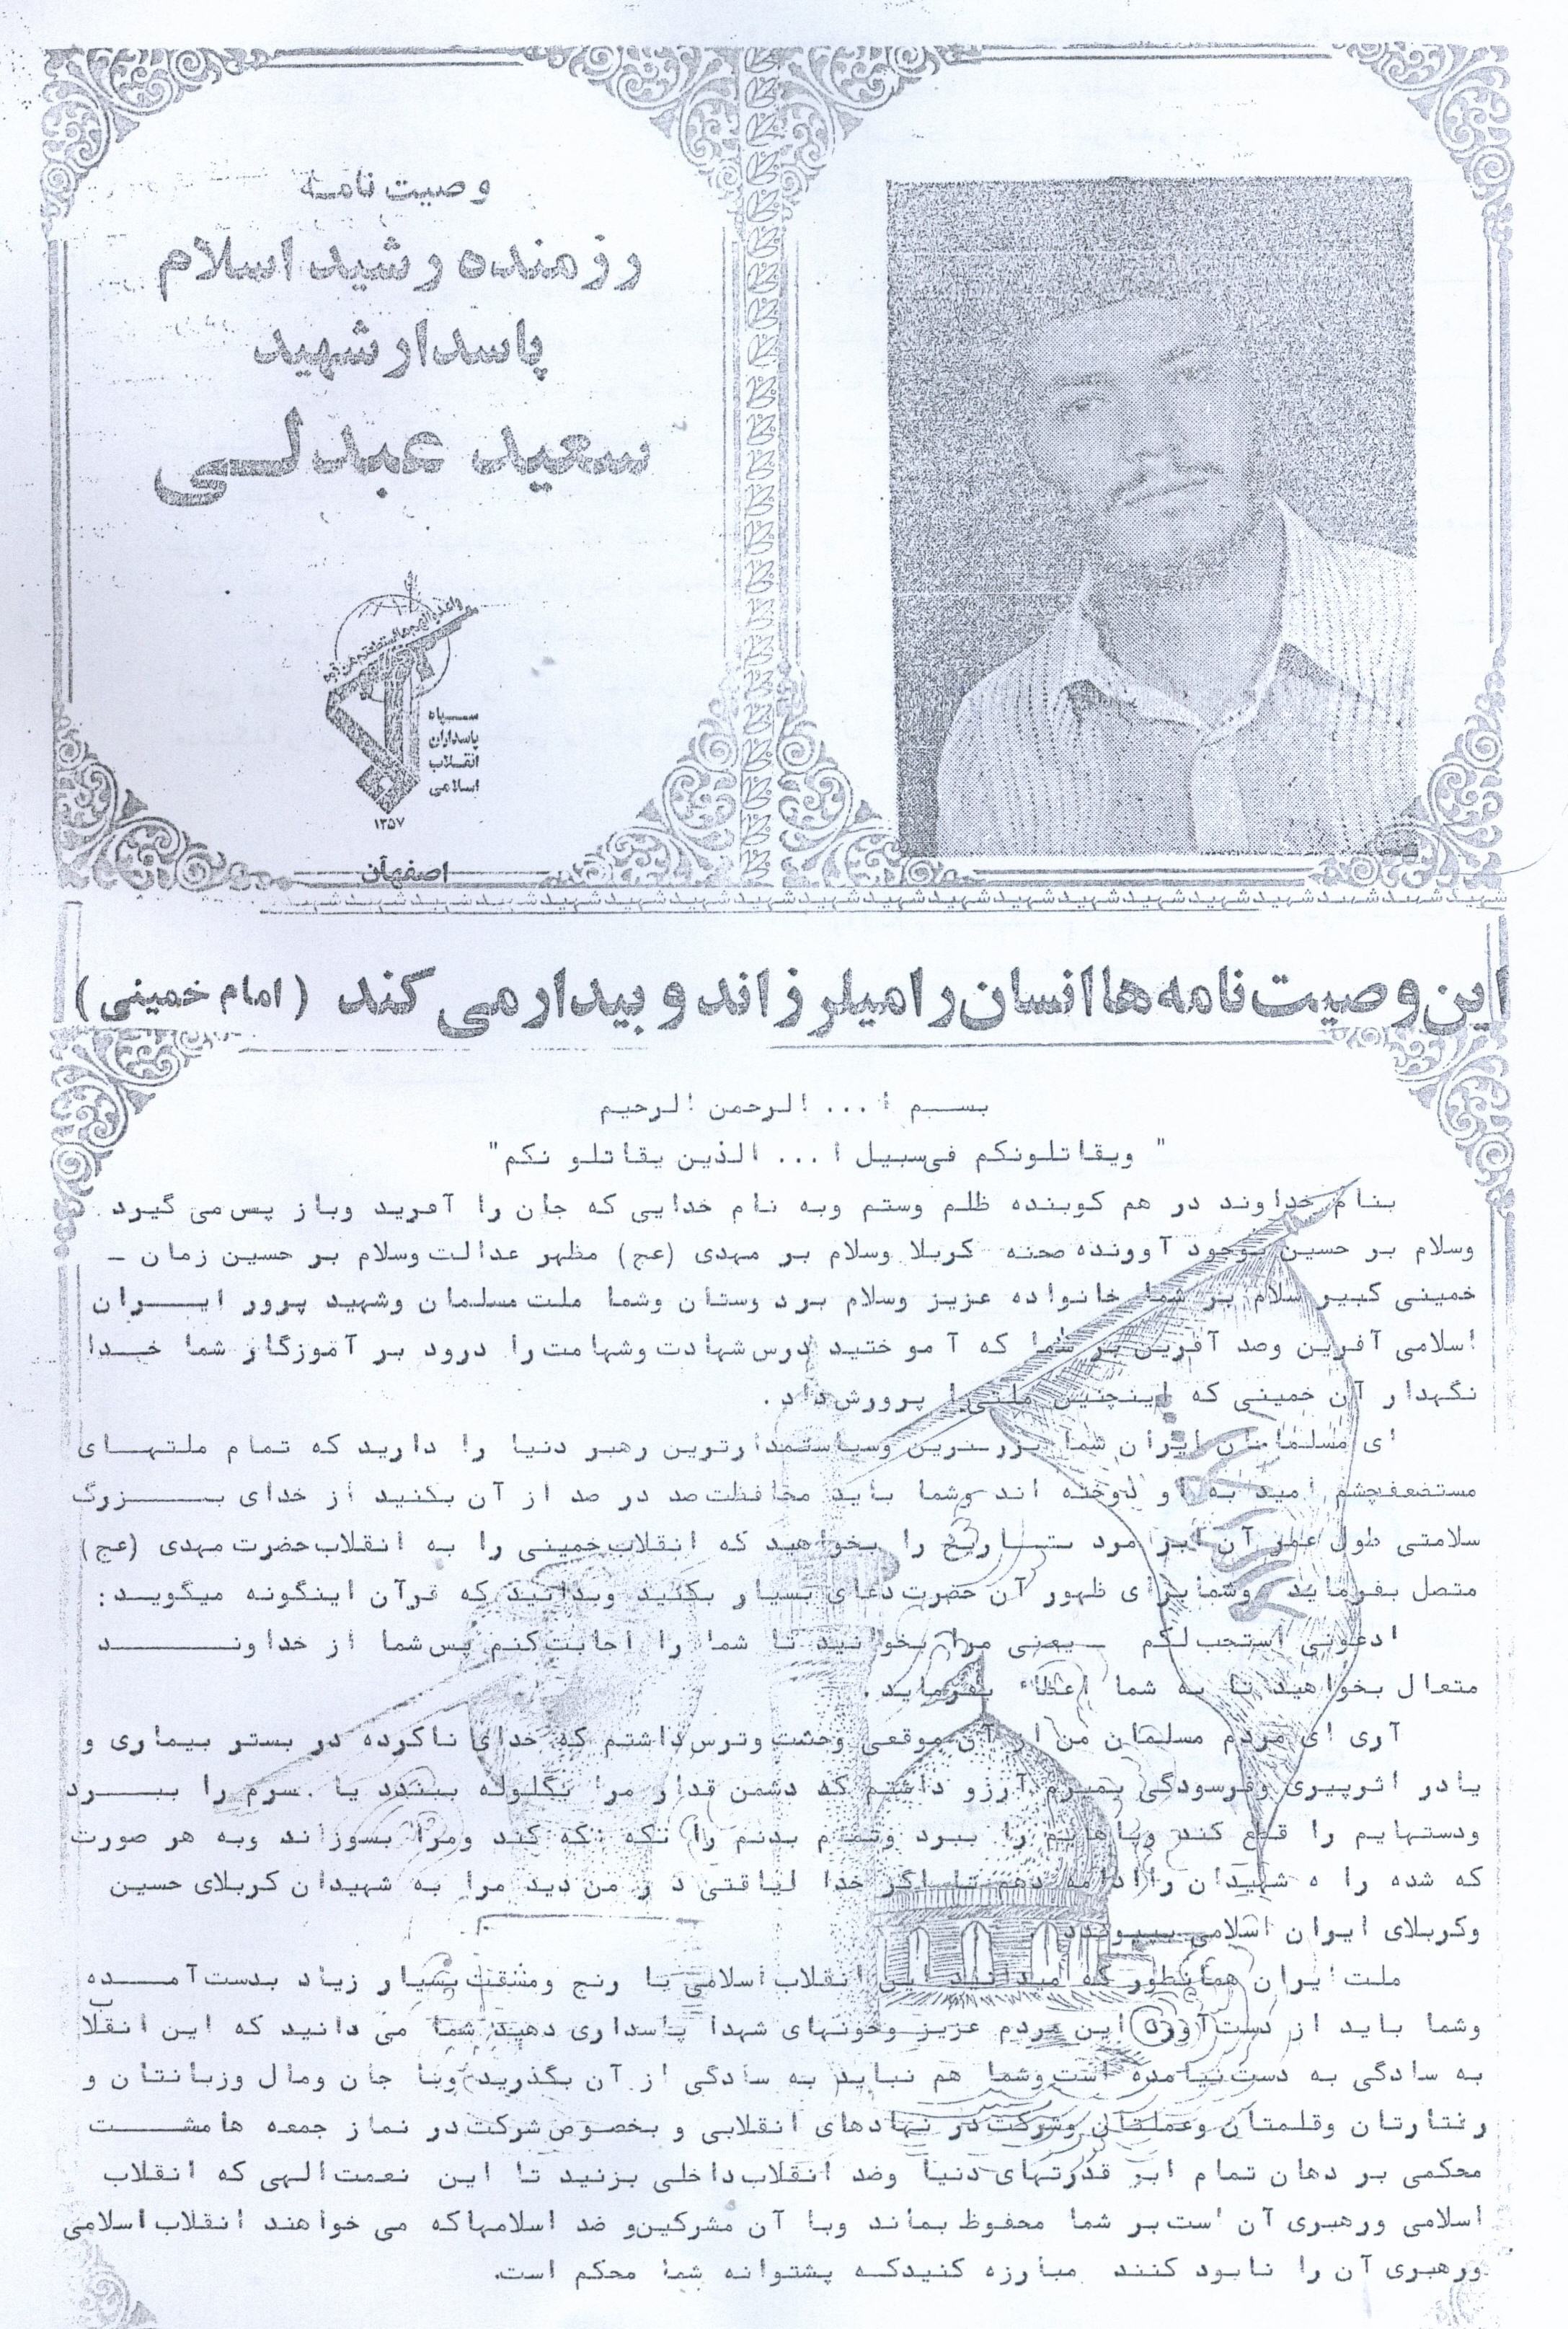 وصیت نامـه
رزمنده رشید اسلام
پاسدار شهید
سعید عبدلـی
سـپاه
پاسداران
انقـلاب
اسلامی
۱۳۵۷
اصفهان
شهید شهید شهید شهید شهید شهید شهید شهید شهید شهید شهید شهید شهید شهید شهید شهید شهید شهید شهید
این وصیت‌نامه‌ها انسان را میلرزاند و بیدار می کند (امام خمینی)
بسـم ا ... الرحمن الرحیم
" ویقاتلونکم فی‌سبیل ا ... الذین یقاتلو نکم"
بنام خداوند در هم کوبنده ظلم وستم وبه نام خدایی که جان را آفرید وباز پس‌می گیرد .
وسلام بر حسین بوجود آوورنده صحنه کربلا وسلام بر مهدی (عج) مظهر عدالت وسلام بر حسین زمان ـ
خمینی کبیر سلام بر شما خانواده عزیز وسلام برد وستان وشما ملت مسلمان وشهید پرور ایـــران
اسلامی آفرین وصد آفرین بر شما که آمو ختید درس‌شهادت وشهامت را درود بر آموزگار شما خــدا
نگهدار آن خمینی که اینچنین ملتی‌را پرورش‌داد .
ای مسلمانان ایران شما بزرگترین وسیاستمدارترین رهبر دنیا را دارید که تمام ملتهــای
مستضعف‌چشم امید به او دوخته اند وشما باید محافظت‌صد در صد از آن بکنید از خدای بـــزرگ
سلامتی طول عمر آن ابر مرد تــاریخ را بخواهید که انقلاب‌خمینی را به انقلاب‌حضرت مهدی (عج)
متصل بفرماید وشمابرای ظهور آن حضرت‌دعای بسیار بکنید وبدانید که قرآن اینگونه میگویـد:
ادعونی استجب‌لکم ـ یعنی مرا بخوانید تا شما را اجابت‌کنم پس‌شما از خداونــــــد
متعال بخواهید تا به شما اعطاء بفرماید .
آری ای مردم مسلمان من از آن موقعی وحشت وترس‌داشتم که خدای ناکرده در بستر بیماری و
یادر اثرپیری وفرسودگی بمیرم آرزو داشتم که دشمن قدار مرا بگلوله ببندد یا سرم را ببـــرد
ودستهایم را قطع کند وپاهایم را ببرد وتمام بدنم را تکه تکه کند ومرا بسوزاند وبه هر صورت
که شده را ه شهیدان راادامه دهم تا اگر خدا لیاقتی د ر من‌دید مرا به شهیدان کربلای حسین
وکربلای ایران اسلامی بپیوندد
ملت ایران همانطور که میدانید این انقلاب‌اسلامی با رنج ومشقت‌بسیار زیاد بدست‌آمــده
وشما باید از دست‌آورد این مردم عزیز وخونهای شهدا پاسداری دهید شما می دانید که این انقلاب
به سادگی به دست‌نیامده است‌وشما هم نباید به سادگی از آن بگذرید وبا جان ومال وزبانتان و
رفتارتان وقلمتان وعملتان وشرکت‌در نهادهای انقلابی و بخصوص‌شرکت‌در نماز جمعه هامشــت
محکمی بر دهان تمام ابر قدرتهای دنیا وضد انقلاب‌داخلی بزنید تا این نعمت‌الهی که انقلاب
اسلامی ورهبری آن است‌بر شما محفوظ بماند وبا آن مشرکین‌و ضد اسلامهاکه می خواهند انقلاب‌اسلامی
ورهبری آن را نابود کنند مبارزه کنیدکـه پشتوانه شما محکم است.